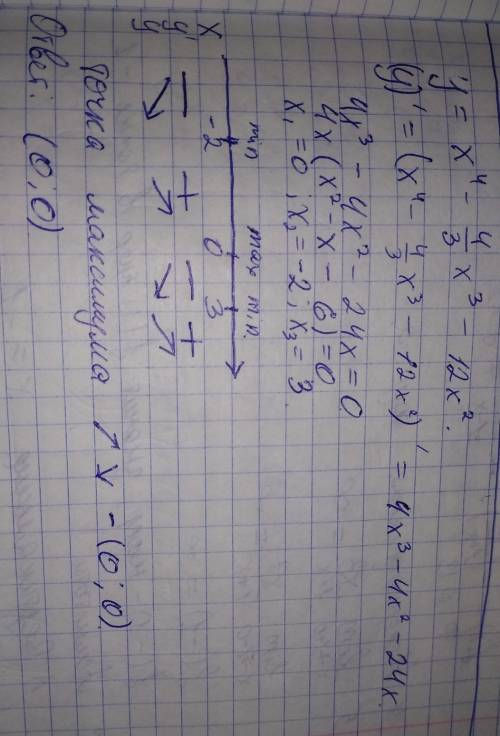 y = x⁴ - 4/3 x³ - 12x².
(y)' = (x⁴ - 4/3 x³ - 12x²)' = 4x³ - 4x² - 24x.
4x³ - 4x² - 24x = 0
4x(x² - x - 6) = 0
x₁ = 0; x₂ = -2; x₃ = 3.
min max min
x -2 0 3
y' - + - +
y ↘ ↗ ↘ ↗
точка максимума ↗ ↘ - (0; 0)
Ответ: (0; 0)